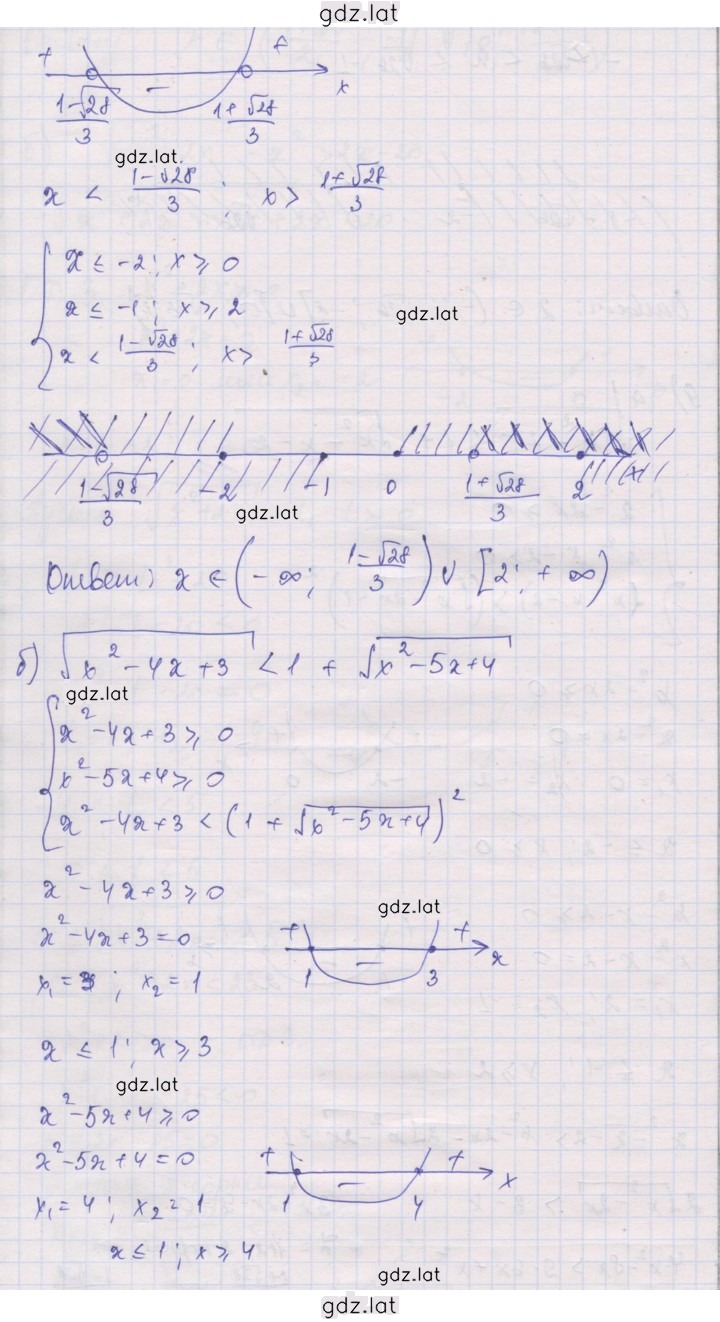 gdz.lat
+ − + x
(1−√28)/3 (1+√28)/3
gdz.lat.
x < (1−√28)/3 ; x > (1+√28)/3
{ x ≤ −2 ; x ⩾ 0
x ≤ −1 ; x ⩾ 2
gdz.lat
x < (1−√28)/3 ; x > (1+√28)/3
(1−√28)/3 −2 −1 0 (1+√28)/3 2 x
gdz.lat
Ответ: x ∈ (−∞; (1−√28)/3) ∪ [2; +∞)
б) √(x²−4x+3) < 1 + √(x²−5x+4)
gdz.lat
{ x²−4x+3 ⩾ 0
x²−5x+4 ⩾ 0
x²−4x+3 < (1 + √(x²−5x+4))²
x²−4x+3 ⩾ 0
gdz.lat
x²−4x+3 = 0
+ − + x
x₁ = 3 ; x₂ = 1
1 3
x ≤ 1 ; x ⩾ 3
gdz.lat
x²−5x+4 ⩾ 0
x²−5x+4 = 0
+ − + x
x₁ = 4 ; x₂ = 1
1 4
x ≤ 1 ; x ⩾ 4
gdz.lat
gdz.lat